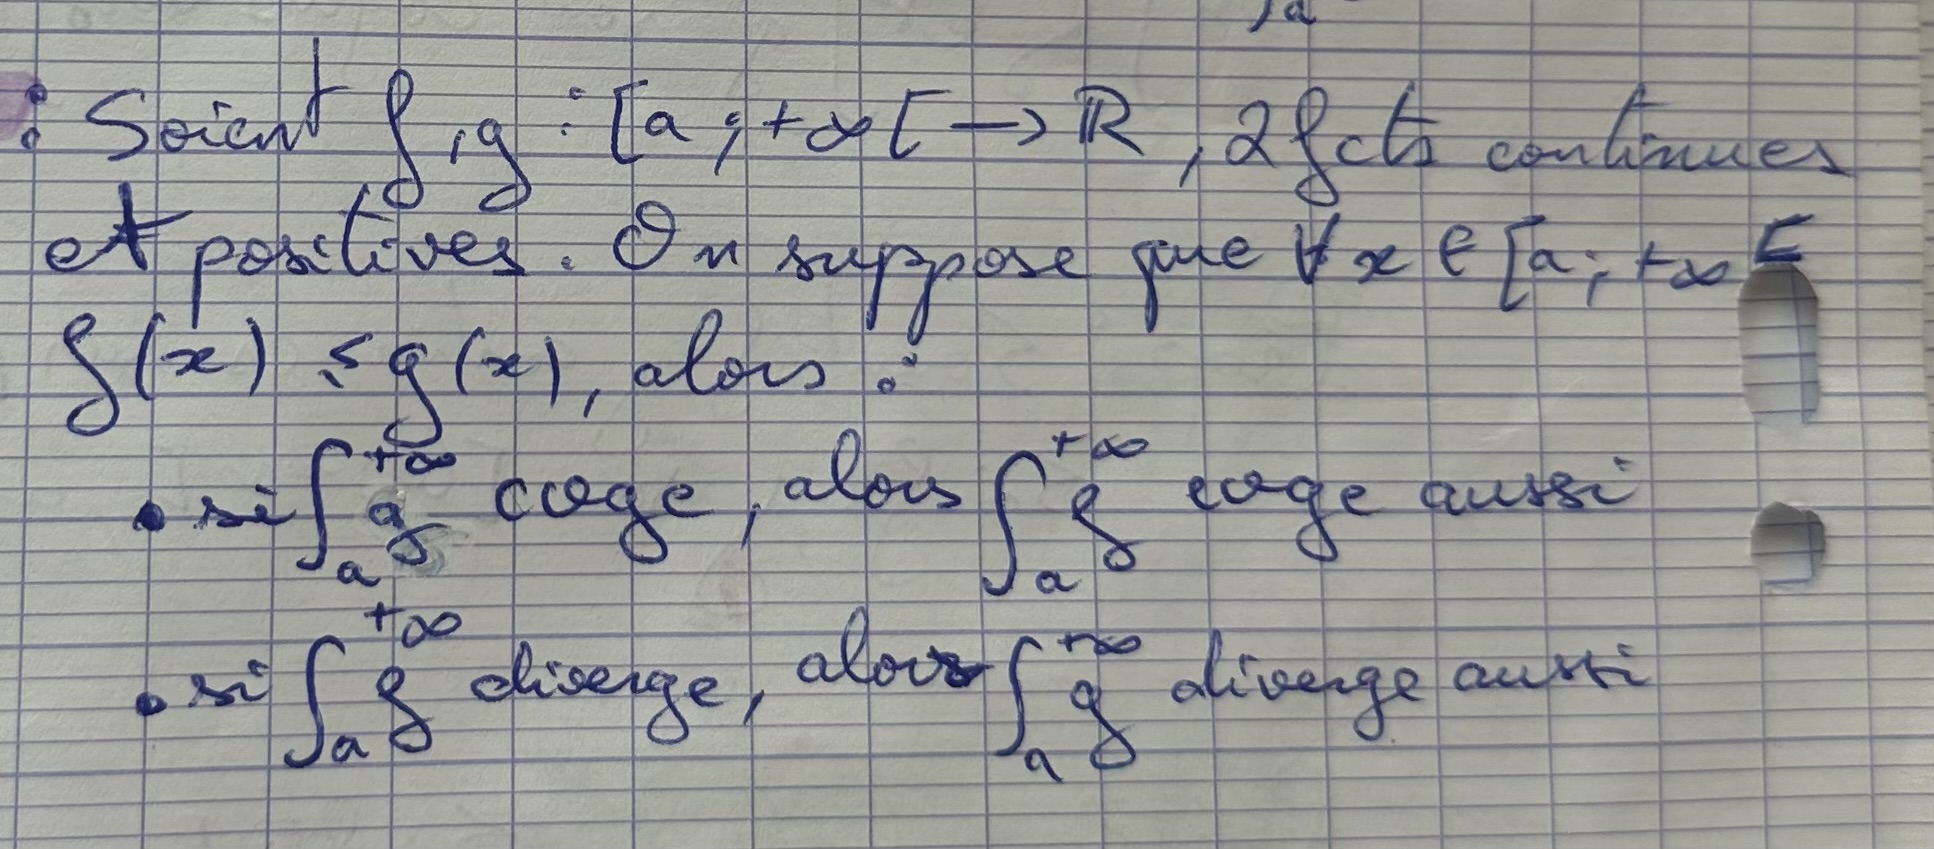 : Soient f, g : [a ; +∞[ → ℝ, 2 fcts continues
et positives. On suppose que ∀ x ∈ [a ; +∞[
f(x) ≤ g(x), alors :
• si ∫ₐ^{+∞} g cvge, alors ∫ₐ^{+∞} f cvge aussi
• si ∫ₐ^{+∞} f diverge, alors ∫ₐ^{+∞} g diverge aussi